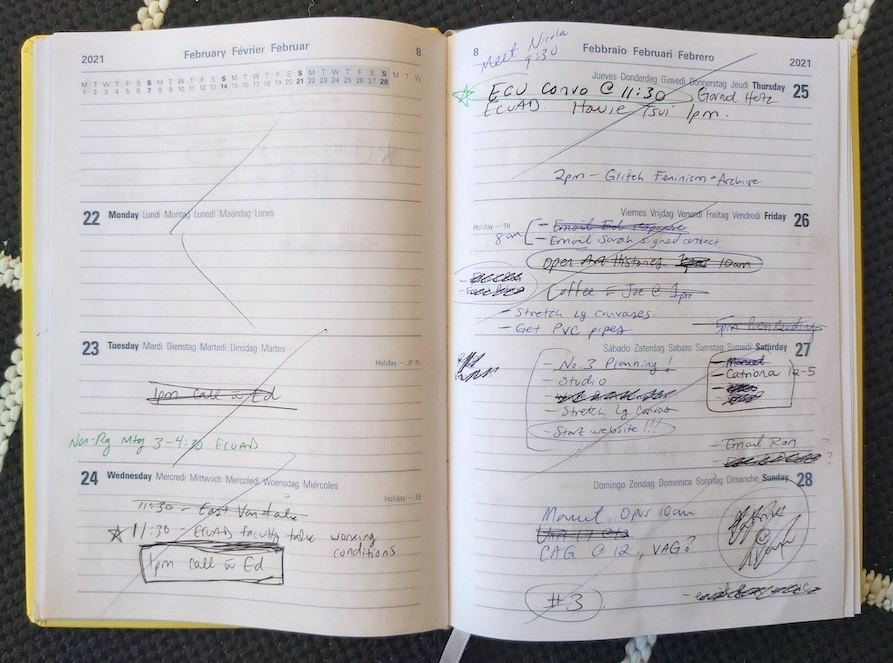 2021 February Février Februar 8
M T W T F S S M T W T F S S M T W T F S S M T W T F S S M T W
1 2 3 4 5 6 7 8 9 10 11 12 13 14 15 16 17 18 19 20 21 22 23 24 25 26 27 28
22 Monday Lundi Montag Lunedì Maandag Lunes
23 Tuesday Mardi Dienstag Martedì Dinsdag Martes
Holiday – JP RU
1pm call w Ed
Non-Rg Mtg 3-4:30 ECUAD
24 Wednesday Mercredi Mittwoch Mercoledì Woensdag Miércoles
Holiday – EE
11:30 – East Van
11:30 ECUAD faculty talk working
conditions
1pm call w Ed
8 Febbraio Februari Febrero 2021
Meet Nicola
9:30
Jueves Donderdag Giovedì Donnerstag Jeudi Thursday 25
ECU Convo @ 11:30
ECUAD Howie Tsui 1pm.
2pm – Glitch Feminism Archive
Viernes Vrijdag Venerdì Freitag Vendredi Friday 26
Holiday – TH
8am – Email Ed response
– Email Sarah signed contact
Open Art Histories 1pm 10am
Coffee Joe @ 1pm
– Stretch Lg canvases
– Get PVC pipes
5pm
Sábado Zaterdag Sabato Samstag Samedi Saturday 27
– No. 3 Planning!
– Studio
– Stretch Lg canvas
– Start website!!!
Manuel
– Catriona 12-5
– Email Ron
?
Domingo Zondag Domenica Sonntag Dimanche Sunday 28
Manuel Opus 10am
CAG @ 12, VAG?
#3